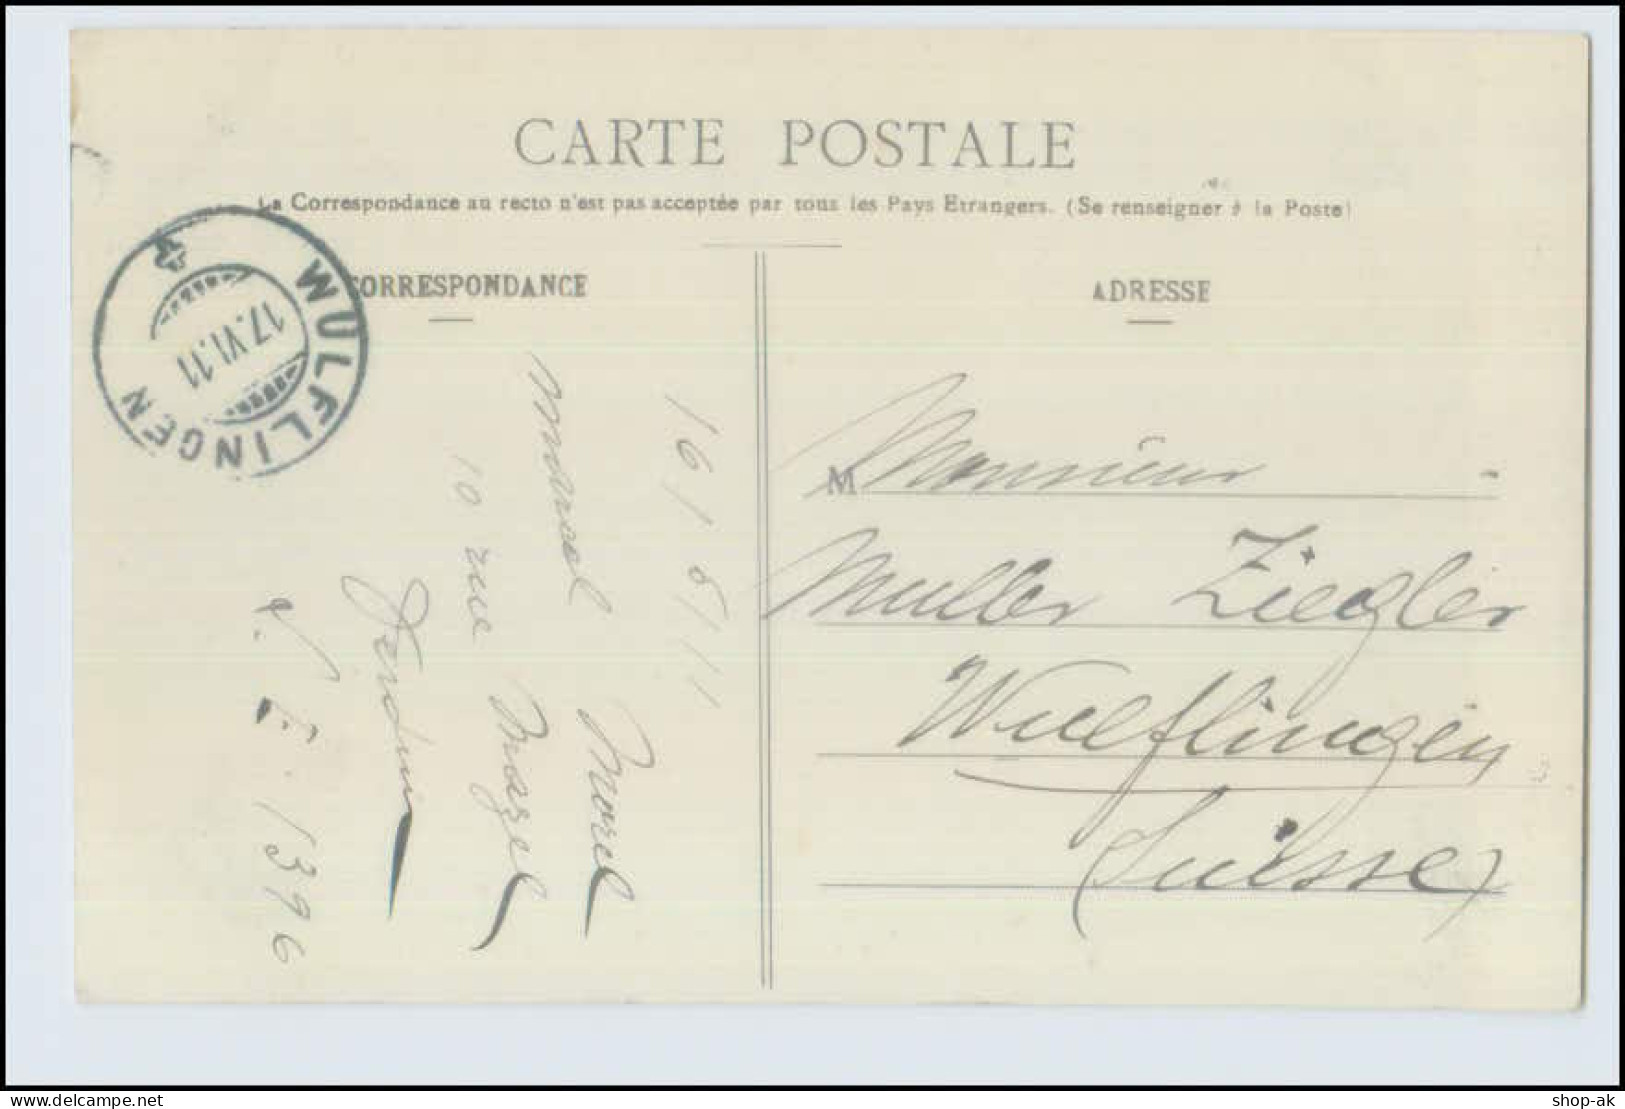 CARTE POSTALE
La Correspondance au recto n'est pas acceptée par tous les Pays Etrangers. (Se renseigner à la Poste)
CORRESPONDANCE
ADRESSE
WULFLINGEN
17.VI.11
16/6/11
Marcel Morel
10 rue Mazel
Verdun
V. E. 1396
M Monsieur
Muller Ziegler
Wulflingen
Suisse
shop-ak